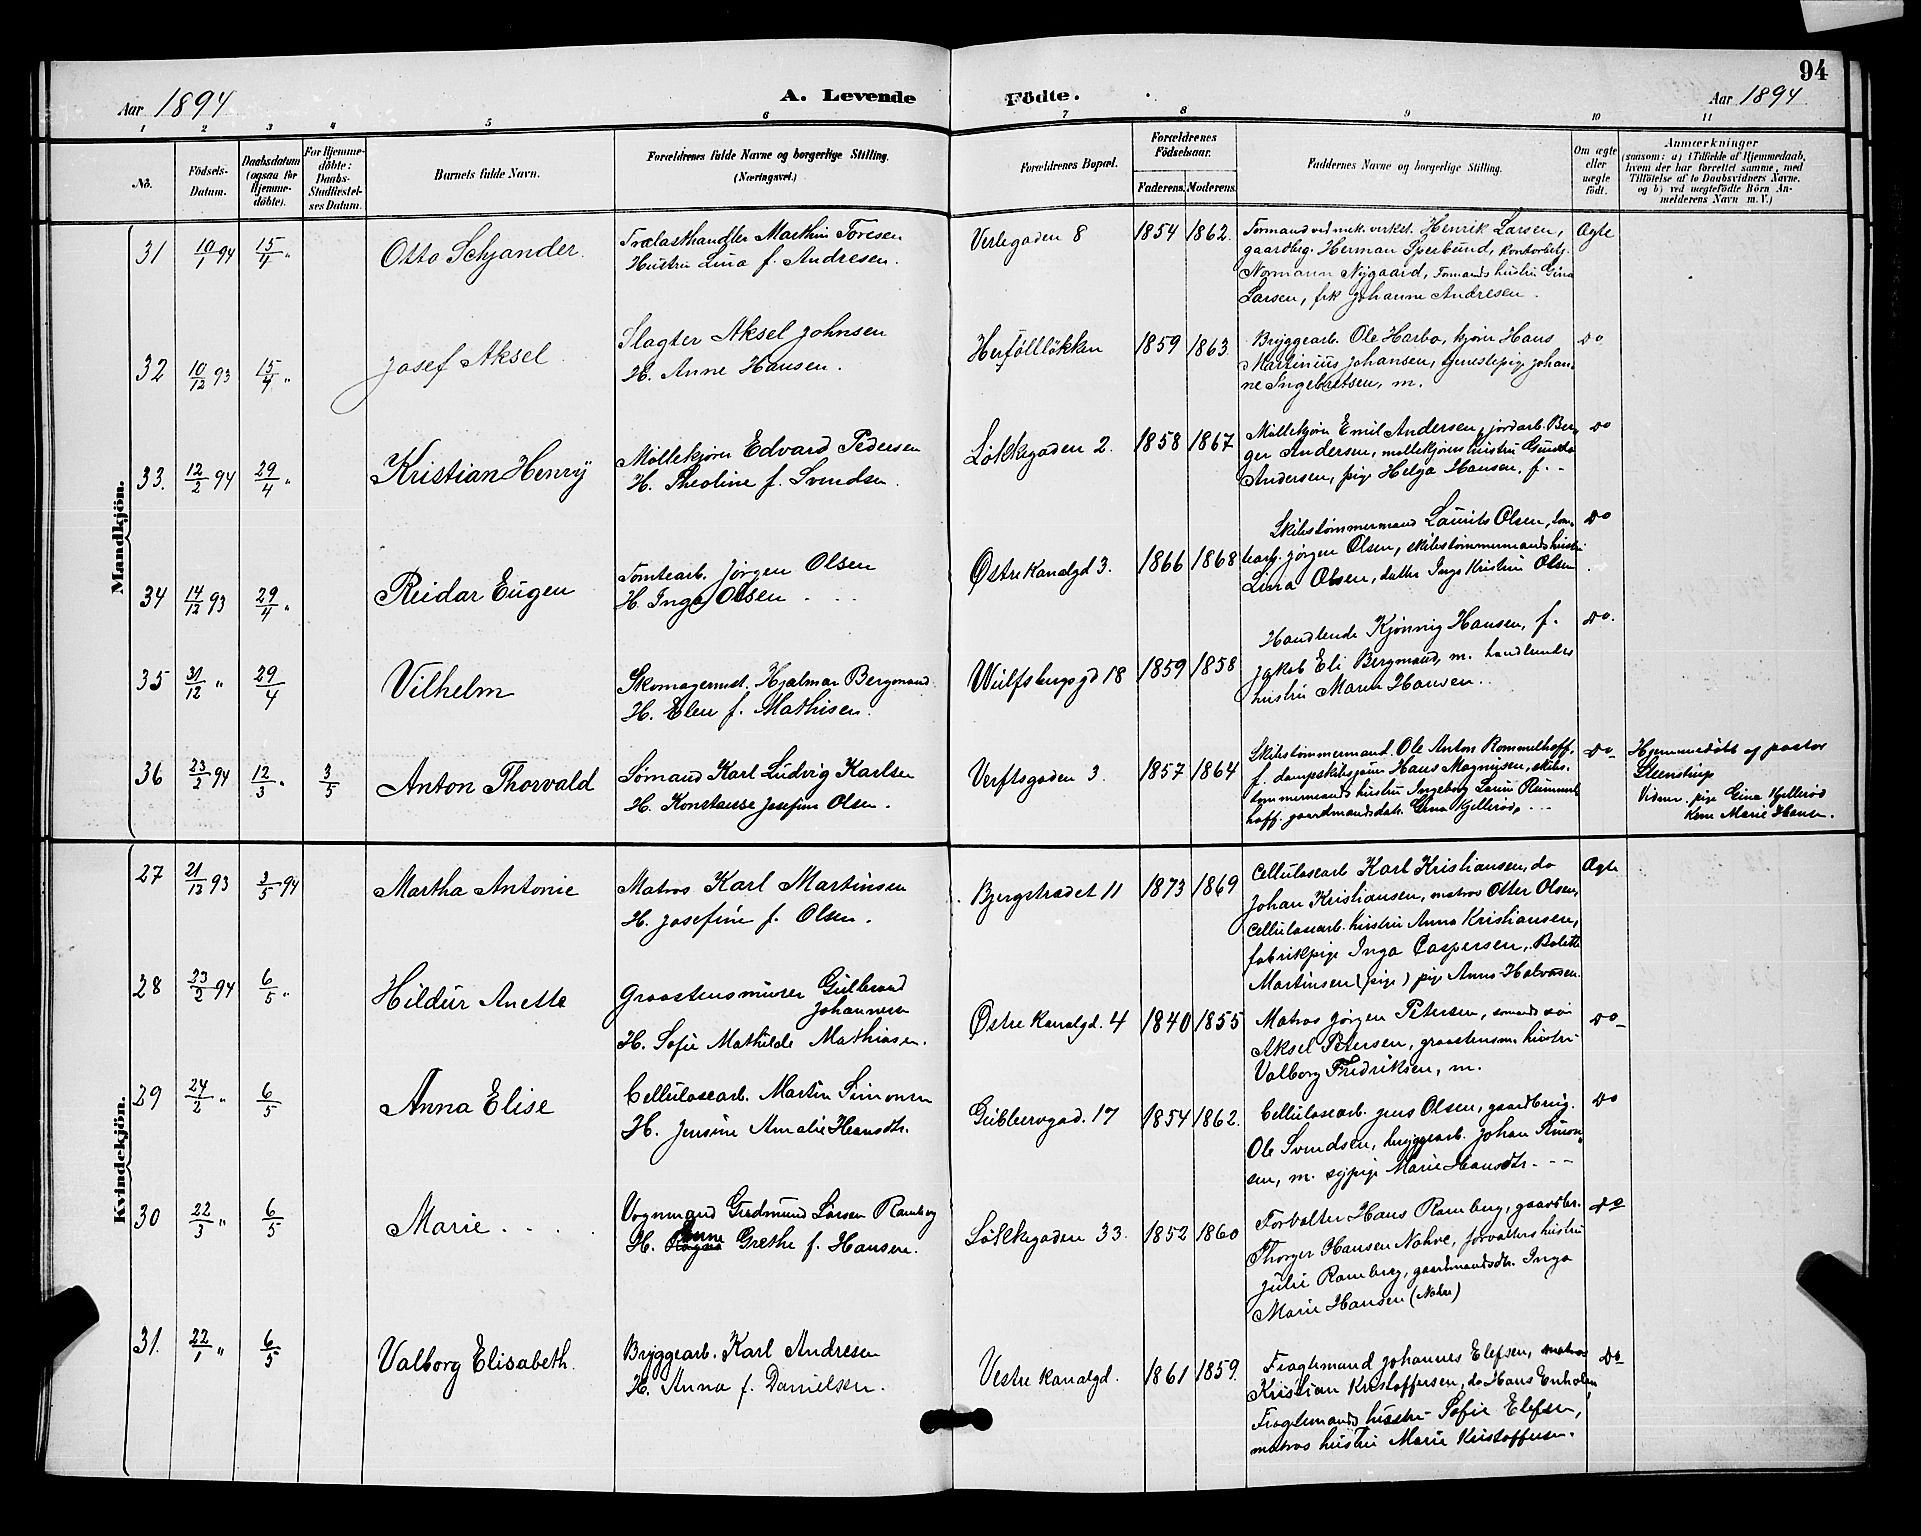 94
Aar 1894
A. Levende
Födte.
Aar 1894
1 2 3 4 5 6 7 8 9 10 11
No.
Födsels-
Datum.
Daabsdatum
(ogsaa for
Hjemme-
döbte).
For Hjemme-
döbte:
Daabs-
Stadfæstel-
ses Datum.
Barnets fulde Navn.
Forældrenes fulde Navne og borgerlige Stilling.
(Næringsvei.)
Forældrenes Bopæl.
Forældrenes
Födselsaar.
Faderens. Moderens.
Faddernes Navne og borgerlige Stilling.
Om ægte
eller
uægte
født.
Anmærkninger
(saasom: a) i Tilfælde af Hjemmedaab,
hvem der har forrettet samme, med
Tilføielse af to Daabsvidners Navne.
og b) ved uægtefødte Börn An-
melderens Navn m. V.)
Mandkjön.
31 10/1 94 15/4 "
Otto Schjander.
Trælasthandler Marthin Toresen
Hustru Lina f. Andresen.
Verlegaden 8
1854 1862.
Formand ved mek. verkst. Henrik Larsen,
gaardbrg. Herman Sperbund, kontorbetj.
Normann Nygaard, Formands hustru Gina
Larsen, frk Johanne Andresen.
Ægte
32 10/12 93 15/4 "
Josef Aksel
Slagter Aksel Johnsen
H. Anne Hansen.
Herföllløkken
1859 1863
Bryggearb. Ole Harbo, kjører Hans
Martinius Johansen, tjenestepige Johan-
ne Ingebretsen, m.
do
33. 12/2 94 29/4 "
Kristian Henry
Møllekjører Edvard Pedersen
H. Theoline f. Svendsen.
Løkkegaden 2.
1858 1867
Møllekjører Emil Andersen, jordarb. Ber-
ger Andersen, møllekjørers hustru Gunda
Andersen, pige Helga Hansen, f.
do
34 14/12 93 29/4 "
Reidar Eugen
Tomtearb. Jørgen Olsen
H. Inga Olsen
Østre Kanalgd 3.
1866 1868
Skibstømmermand Laurits Olsen, tom-
tearb. Jørgen Olsen, skibstømmermands hustru
Lina Olsen, datter Inga Kristine Olsen
do
35 31/12 " 29/4
Vilhelm
Skomagermst. Hjalmar Bergmand
H. Elen f. Mathisen.
Wulfsbergsgd 18
1859 1858
Handlende Kjønnig Hansen, f.
Jakob Eli Bergmand, m. handlendes
hustru Maren Hansen.
do.
36 23/2 94 12/3 " 3/5
Anton Thorvald
Sømand Karl Ludvig Karlsen
H. Konstanse Josefine Olsen.
Verftsgaden 3.
1857 1864
Skibstømmermand Ole Anton Rommelhoff,
f. dampskibsfører Hans Magnusen, skibs-
tømmermands hustru Ingeborg Larine Rommel-
hoff. gaardmandsdatr. Gina Gjellerød,
do
Hjemmedøbt af pastor
Steenstrup
Vidner. pige Gina Gjellerød
Kone Marie Hansen.
Kvindekjön.
27 21/12 93 3/5 94
Martha Antonie
Matros Karl Martinsen
H. Josefine f. Olsen.
Bjergstrædet 11
1873 1869
Cellulosearb Karl Kristiansen, do
Johan Kristiansen, matros Otter Olsen,
Cellulosearb. hustru Anna Kristiansen,
fabrikpige Inga Caspersen, Bolette
Martinsen (pige) pige Anna Halvorsen.
Ægte
28 23/2 94 6/5 "
Hildur Anette
Graastensmurer Gulbrand
Johannesen
H. Sofie Mathilde Mathiasen.
Østre Kanalgd. 4
1840 1855
Matros Jørgen Petersen, sømands søn
Aksel Petersen, graastensm. hustru
Valborg Fredriksen, m.
do
29 24/2 " 6/5
Anna Elise
Cellulosearb. Martin Simonsen
H. Jensine Amalie Hansdtr.
17
1854 1862.
Cellulosearb. Jens Olsen, gaardbrug.
Ole Svendsen, bryggearb. Johan Simon-
sen, m. sypige Marie Hansdtr.
do
30 22/3 " 6/5
Marie
Vognmand Gudmund Larsen Ramberg
H. Anne Grethe f. Hansen.
Løkkegaden 33.
1852 1860
Forvalter Hans Ramberg, gaardbr.
Thorger Hansen Nahve, forvalters hustru
Julie Ramberg, gaardmandsdtr. Inga
Marie Hansen (Nahve)
do
31. 22/1 " 6/5
Valborg Elisabeth.
Bryggearb. Karl Andresen
H. Anna f. Danielsen.
Vestre Kanalgd.
1861 1859.
Fragtemand Johannes Elefsen, matros
Kristian Kristoffersen, do Hans Enholm
Fragtemands hustru Sofie Elefsen,
matros hustru Marie Kristoffersen.
do